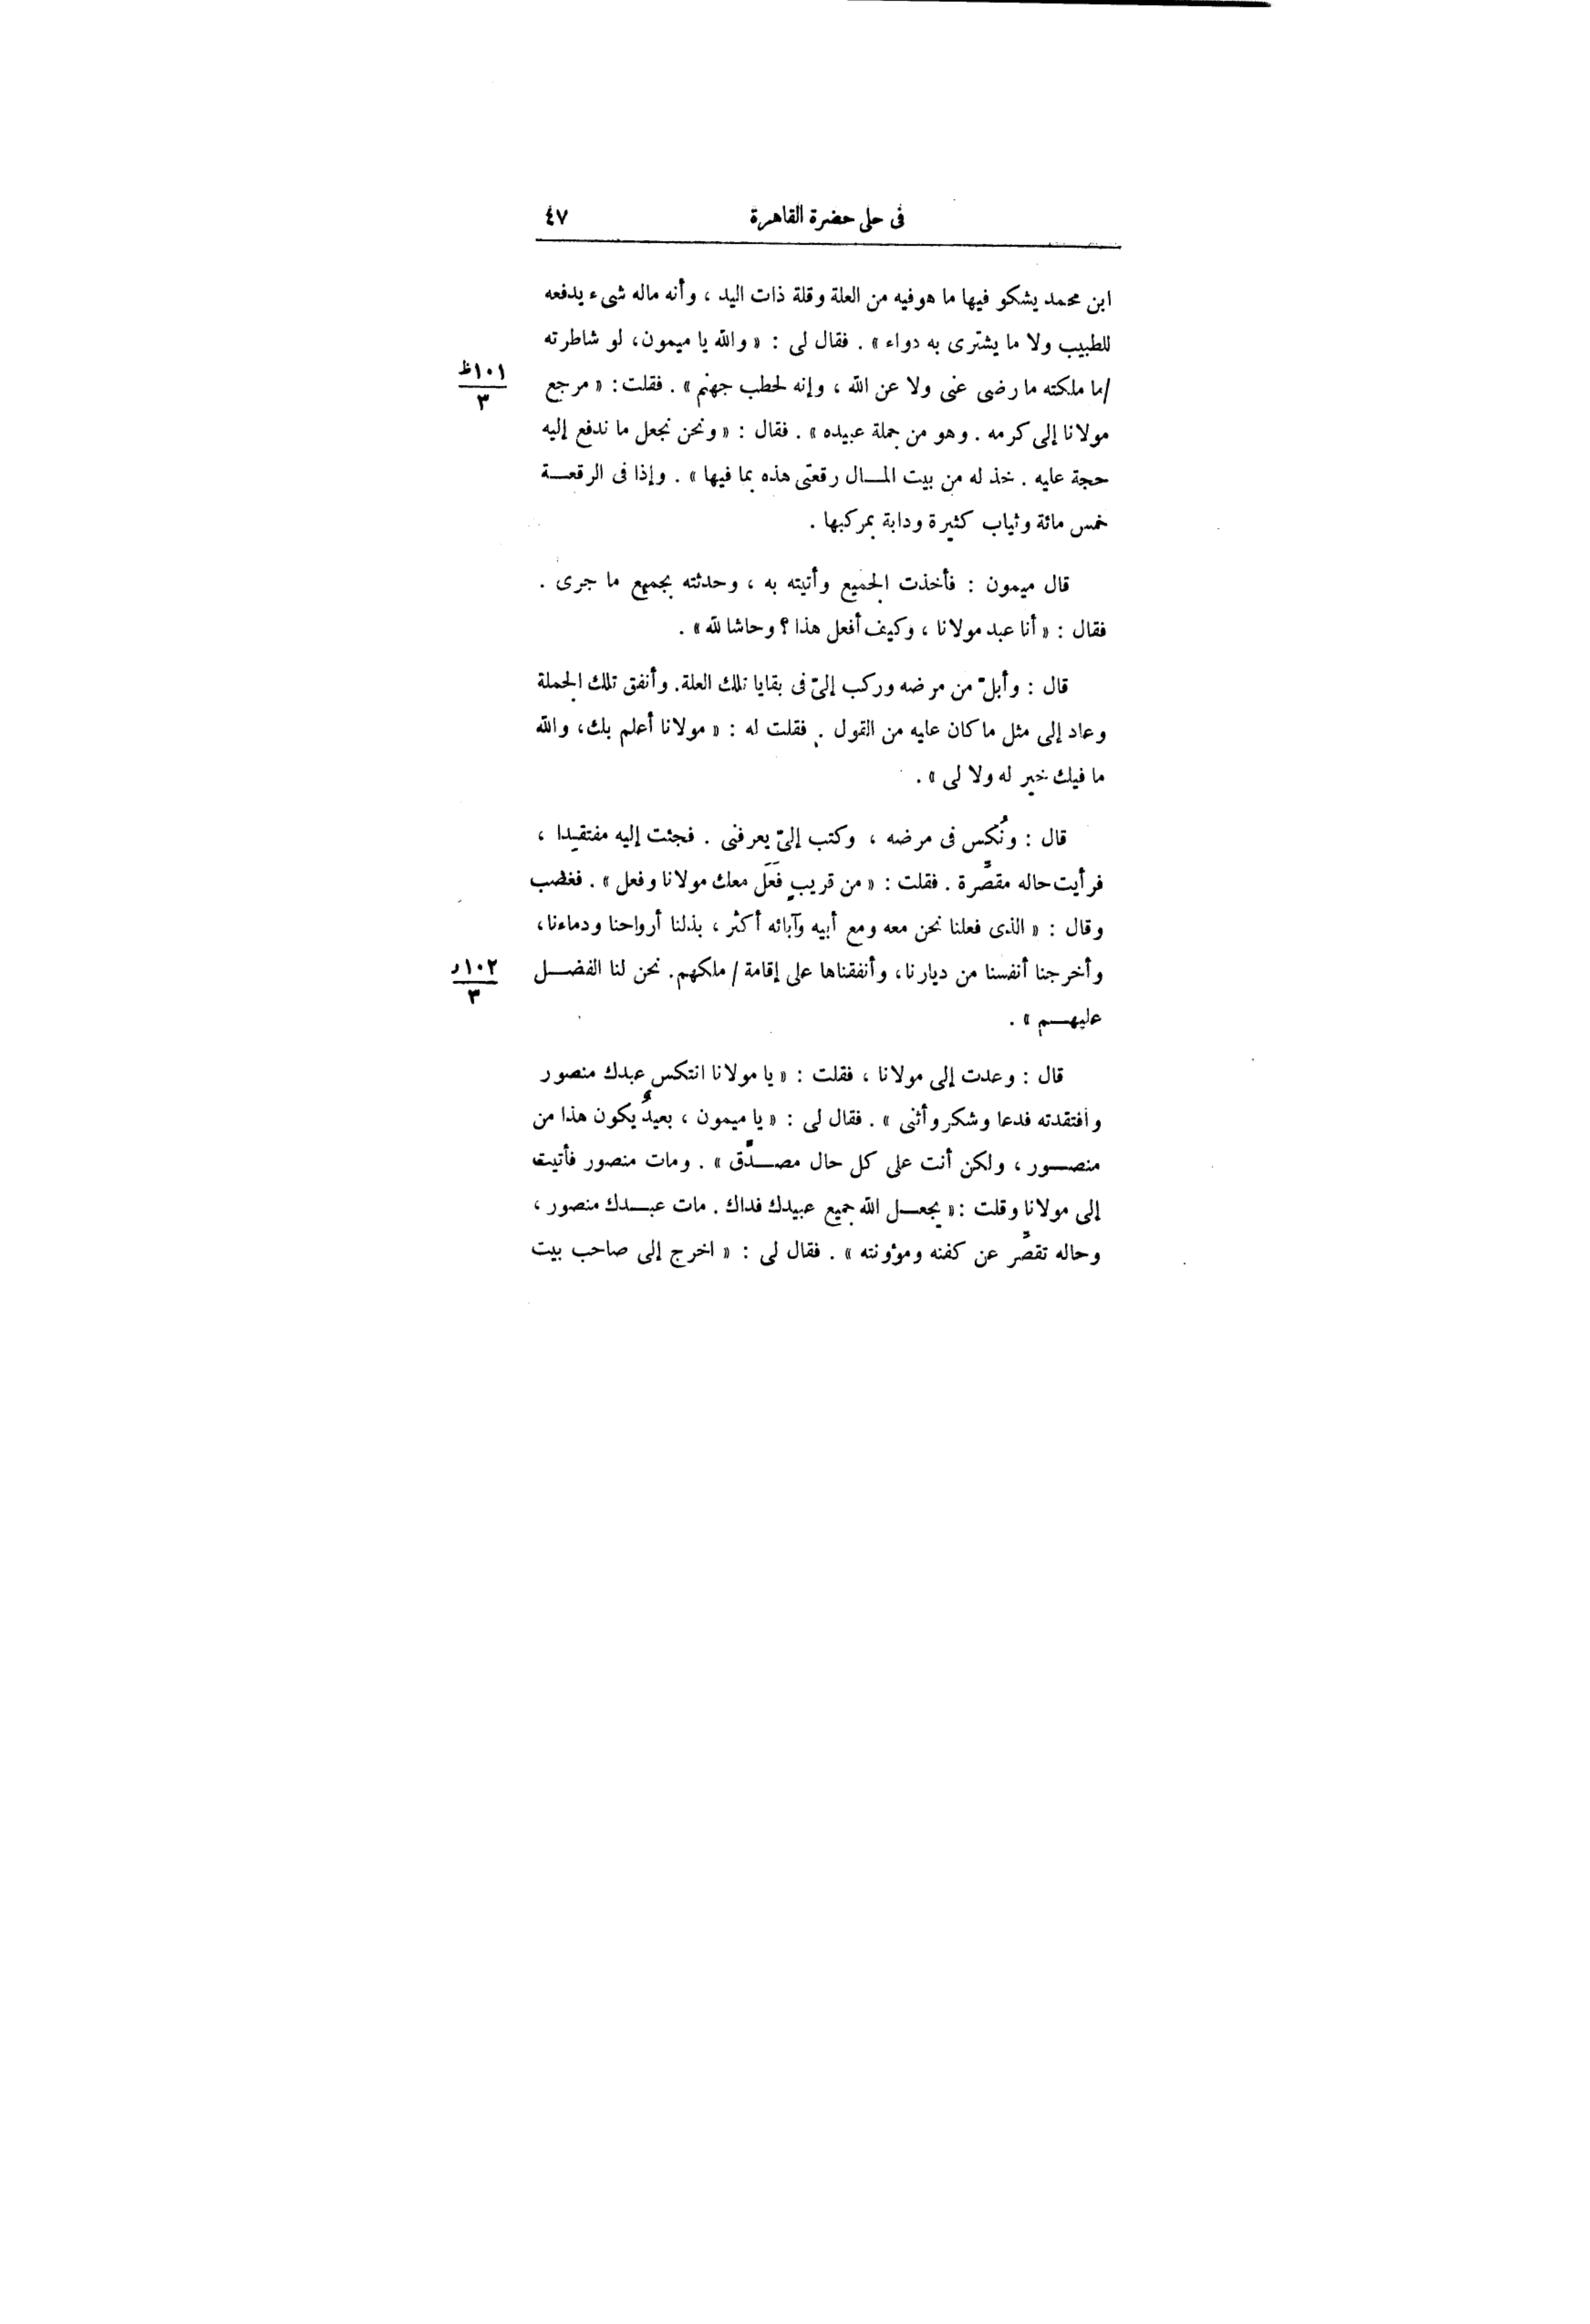 فى حلى حضرة القاهرة ٤٧
ابن محمد يشكو فيها ما هو فيه من العلة وقلة ذات اليد ، وأنه ماله شىء يدفعه
للطبيب ولا ما يشترى به دواء » . فقال لى : « والله يا ميمون، لو شاطرته
١٠١ظ
٣
/ما ملكته ما رضى عنى ولا عن الله ، وإنه لحطب جهنم » . فقلت : « مرجع
مولانا إلى كرمه . وهو من جملة عبيده » . فقال : « ونحن نجعل ما ندفع إليه
حجة عليه . خذ له من بيت المـــال رقعتى هذه بما فيها » . وإذا فى الرقعـــة
خمس مائة وثياب كثيرة ودابة بمركبها .
قال ميمون : فأخذت الجميع وأتيته به ، وحدثته بجميع ما جرى .
فقال : « أنا عبد مولانا ، وكيف أفعل هذا ؟ وحاشا لله » .
قال : وأبلّ من مرضه وركب إلىّ فى بقايا تلك العلة. وأنفق تلك الجملة
وعاد إلى مثل ما كان عليه من القول . فقلت له : « مولانا أعلم بك، والله
ما فيك خير له ولا لى » .
قال : ونُكس فى مرضه ، وكتب إلىّ يعرفنى . فجئت إليه مفتقدا ،
فرأيت حاله مقصِّرة . فقلت : « من قريبٍ فَعَلَ معك مولانا وفعل » . فغضب
وقال : « الذى فعلنا نحن معه ومع أبيه وآبائه أكثر ، بذلنا أرواحنا ودماءنا،
وأخرجنا أنفسنا من ديارنا، وأنفقناها على إقامة / ملكهم. نحن لنا الفضـــل
١٠٢ر
٣
عليهـــم » .
قال : وعدت إلى مولانا ، فقلت : « يا مولانا انتكس عبدك منصور
وافتقدته فدعا وشكر وأثنى » . فقال لى : « يا ميمون ، بعيدٌ يكون هذا من
منصـــور ، ولكن أنت على كل حال مصـــدَّق » . ومات منصور فأتيت
إلى مولانا وقلت : « يجعـــل الله جميع عبيدك فداك . مات عبـــدك منصور ،
وحاله تقصِّر عن كفنه ومؤونته » . فقال لى : « اخرج إلى صاحب بيت